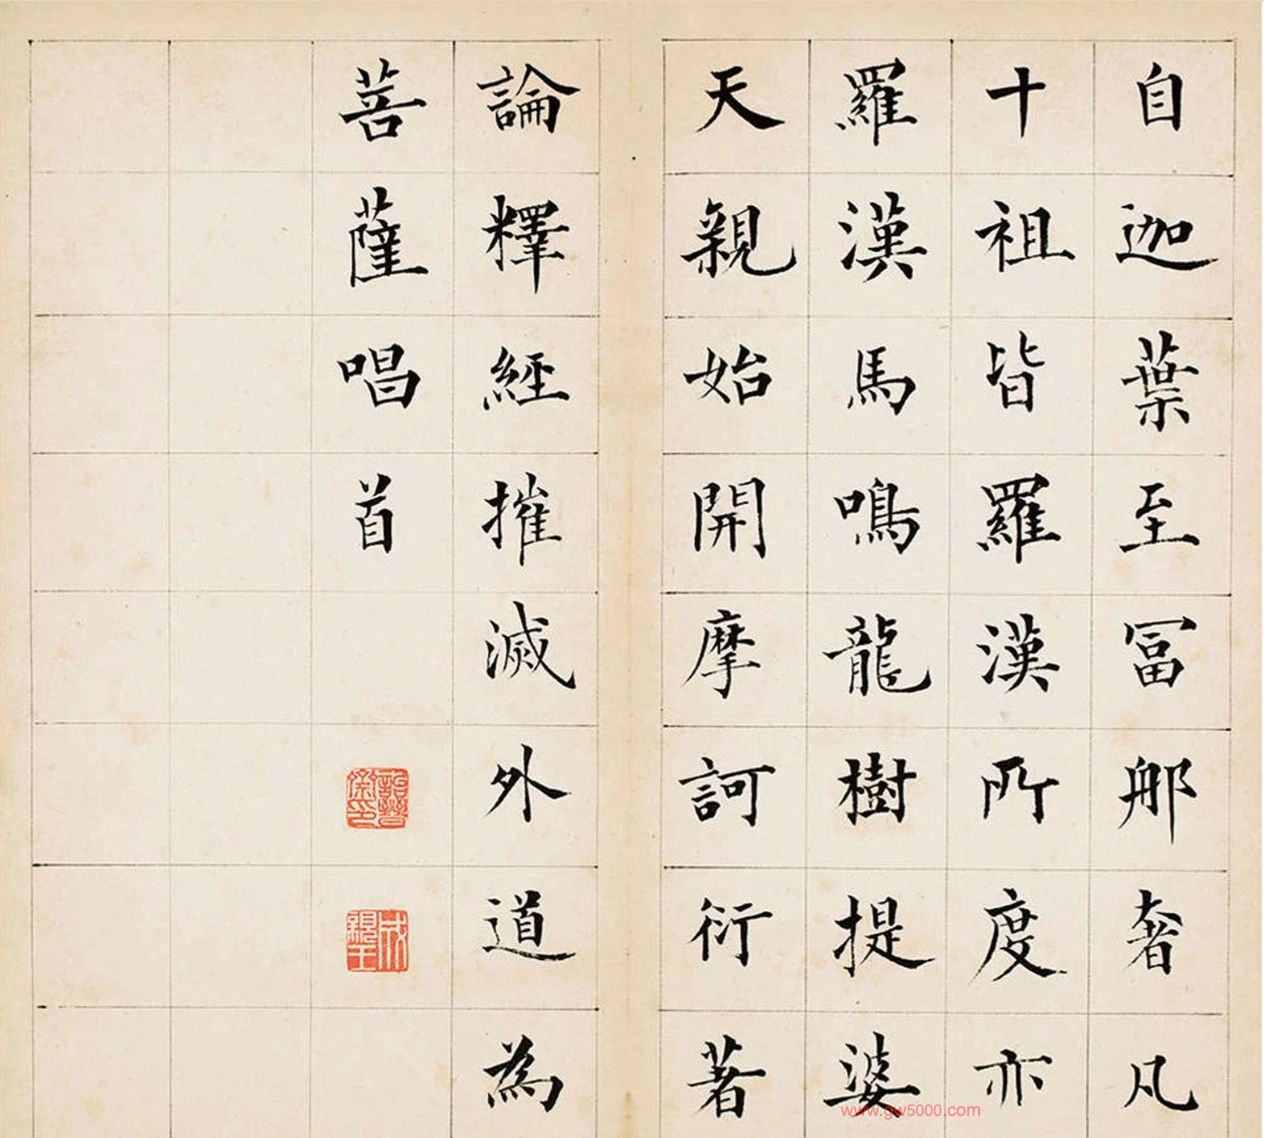 自迦葉至冨那奢凡
十祖皆羅漢所度亦
羅漢馬鳴龍樹提婆
天親始開摩訶衍著
論釋經摧滅外道為
菩薩唱首
詒晉齋印
成親王
www.gw5000.com